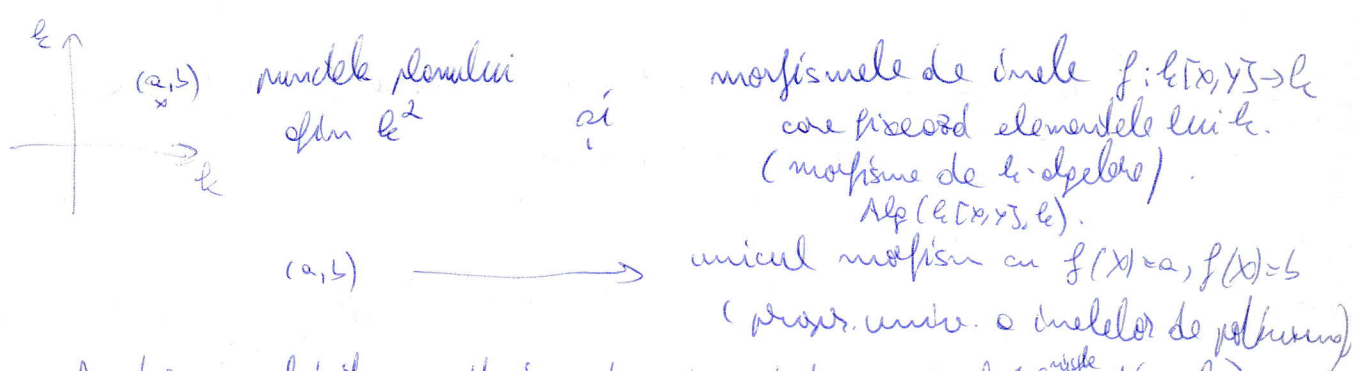 k
(a,b) punctele planului și morfismele de inele f: k[X,Y]→k
x
afin k² care fixează elementele lui k.
k
(morfisme de k-algebre).
Alg(k[X,Y],k).
(a,b) → unicul morfism cu f(X)=a, f(X)=b
(propr. univ. a inelelor de polinoame)